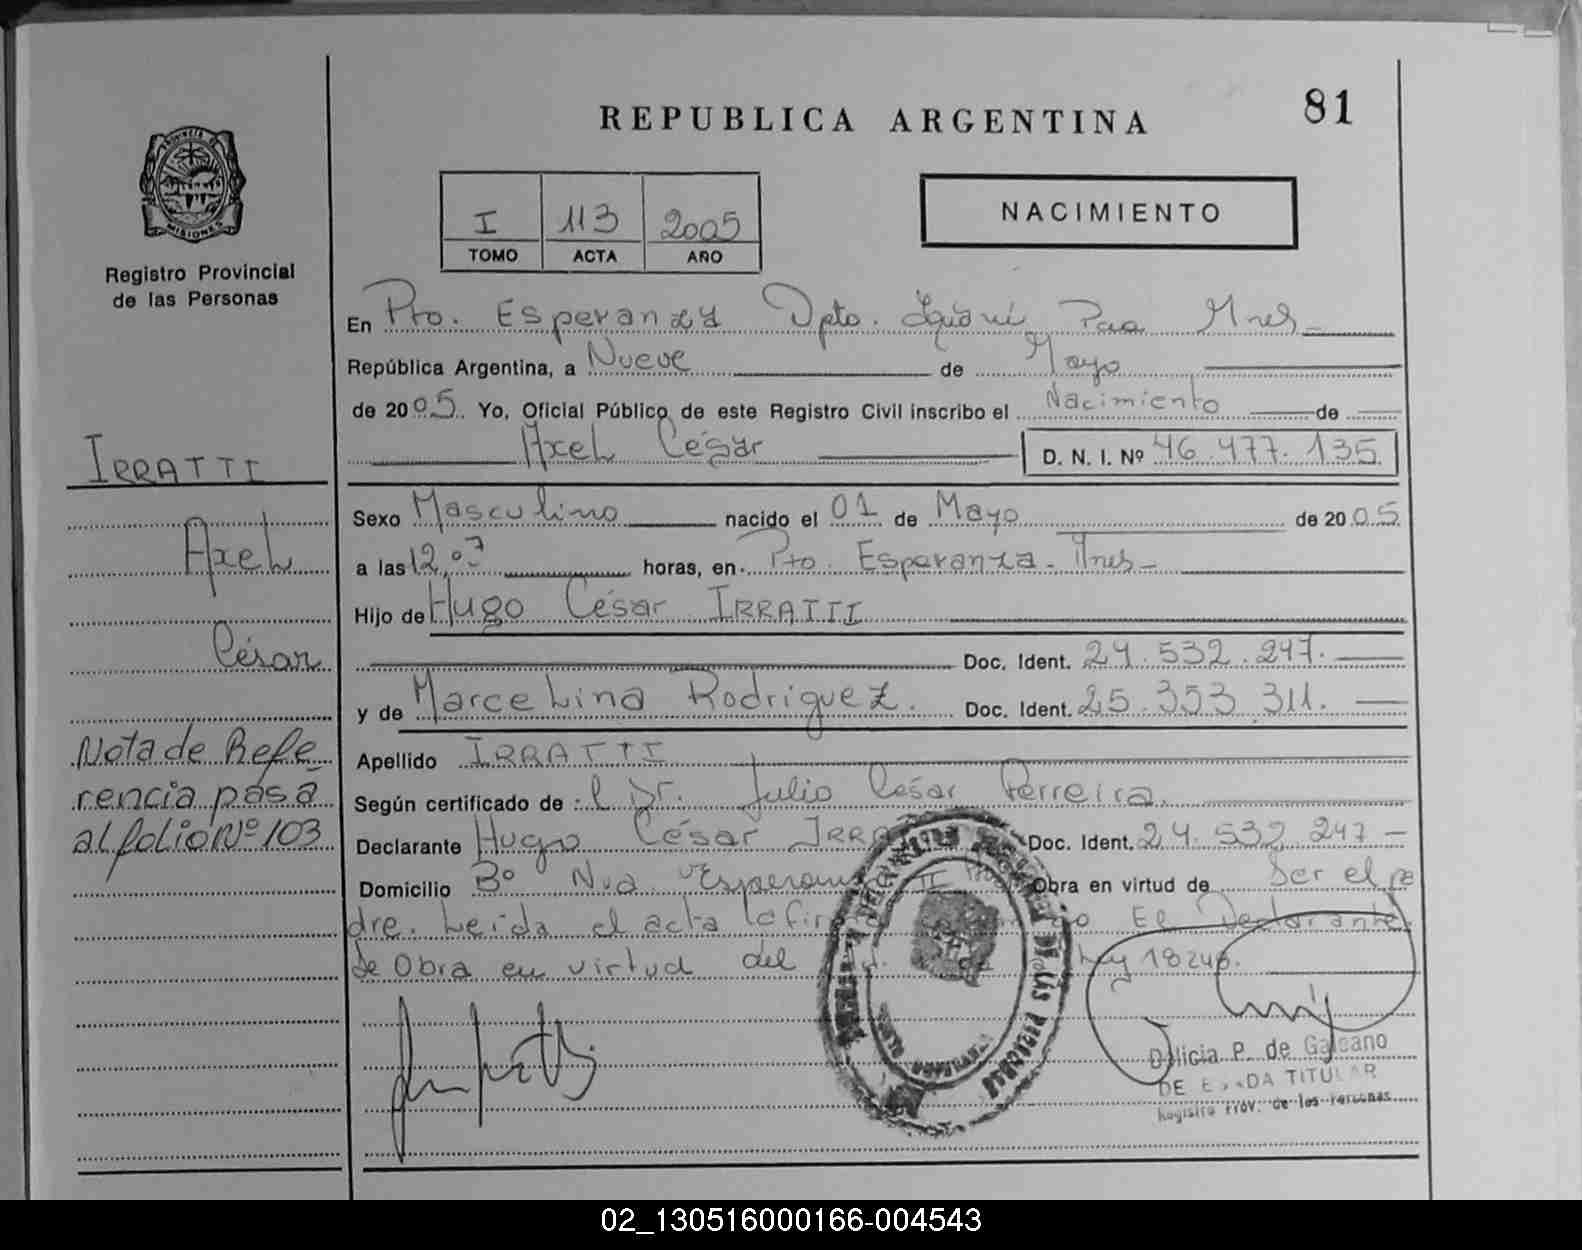 81
REPUBLICA ARGENTINA
PROVINCIA DE
MISIONES
Registro Provincial
de las Personas
I 113 2005
TOMO ACTA AÑO
NACIMIENTO
IRRATTI
Axel
César
Nota de Refe
rencia pasa
al folio Nº 103
En Pto. Esperanza Dpto. Iguazú Pcia Mnes
República Argentina, a Nueve de Mayo
de 2005. Yo, Oficial Público de este Registro Civil inscribo el Nacimiento de
Axel César D. N. I. Nº 46.477.135
Sexo Masculino nacido el 01 de Mayo de 2005
a las 12,07 horas, en Pto. Esperanza - Mnes -
Hijo de Hugo César IRRATTI
Doc. Ident. 24.532.247.
y de Marcelina Rodriguez. Doc. Ident. 25.353.311.
Apellido IRRATTI
Según certificado de: l Dr. Julio César Ferreira
Declarante Hugo César Doc. Ident. 24.532.247 -
Domicilio Bº Nva Esperanza II Obra en virtud de Ser el pa
dre. Leida el acta la El Declarante
de Obra en virtud del Ley 18248.
DE LAS PERSONAS
P. de Galeano
TITULAR
Registro Prov. de las Personas
02_130516000166-004543